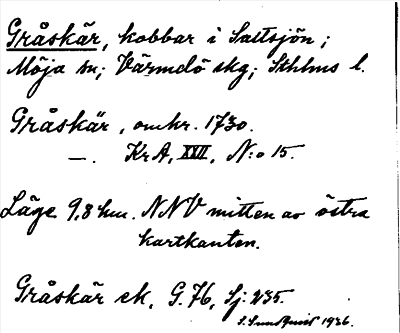 Gråskär, kobbar i Saltsjön;
Möja sn; Värmdö skg; Sthlms l.
Gråskär, omkr. 1730.
—. KrA, XXII, N:o 15.
Läge 9,8 km. NNV mitten av östra
kartkanten.
Gråskär ek, G. 76, Sj: 235.
S. Sundqvist 1936.